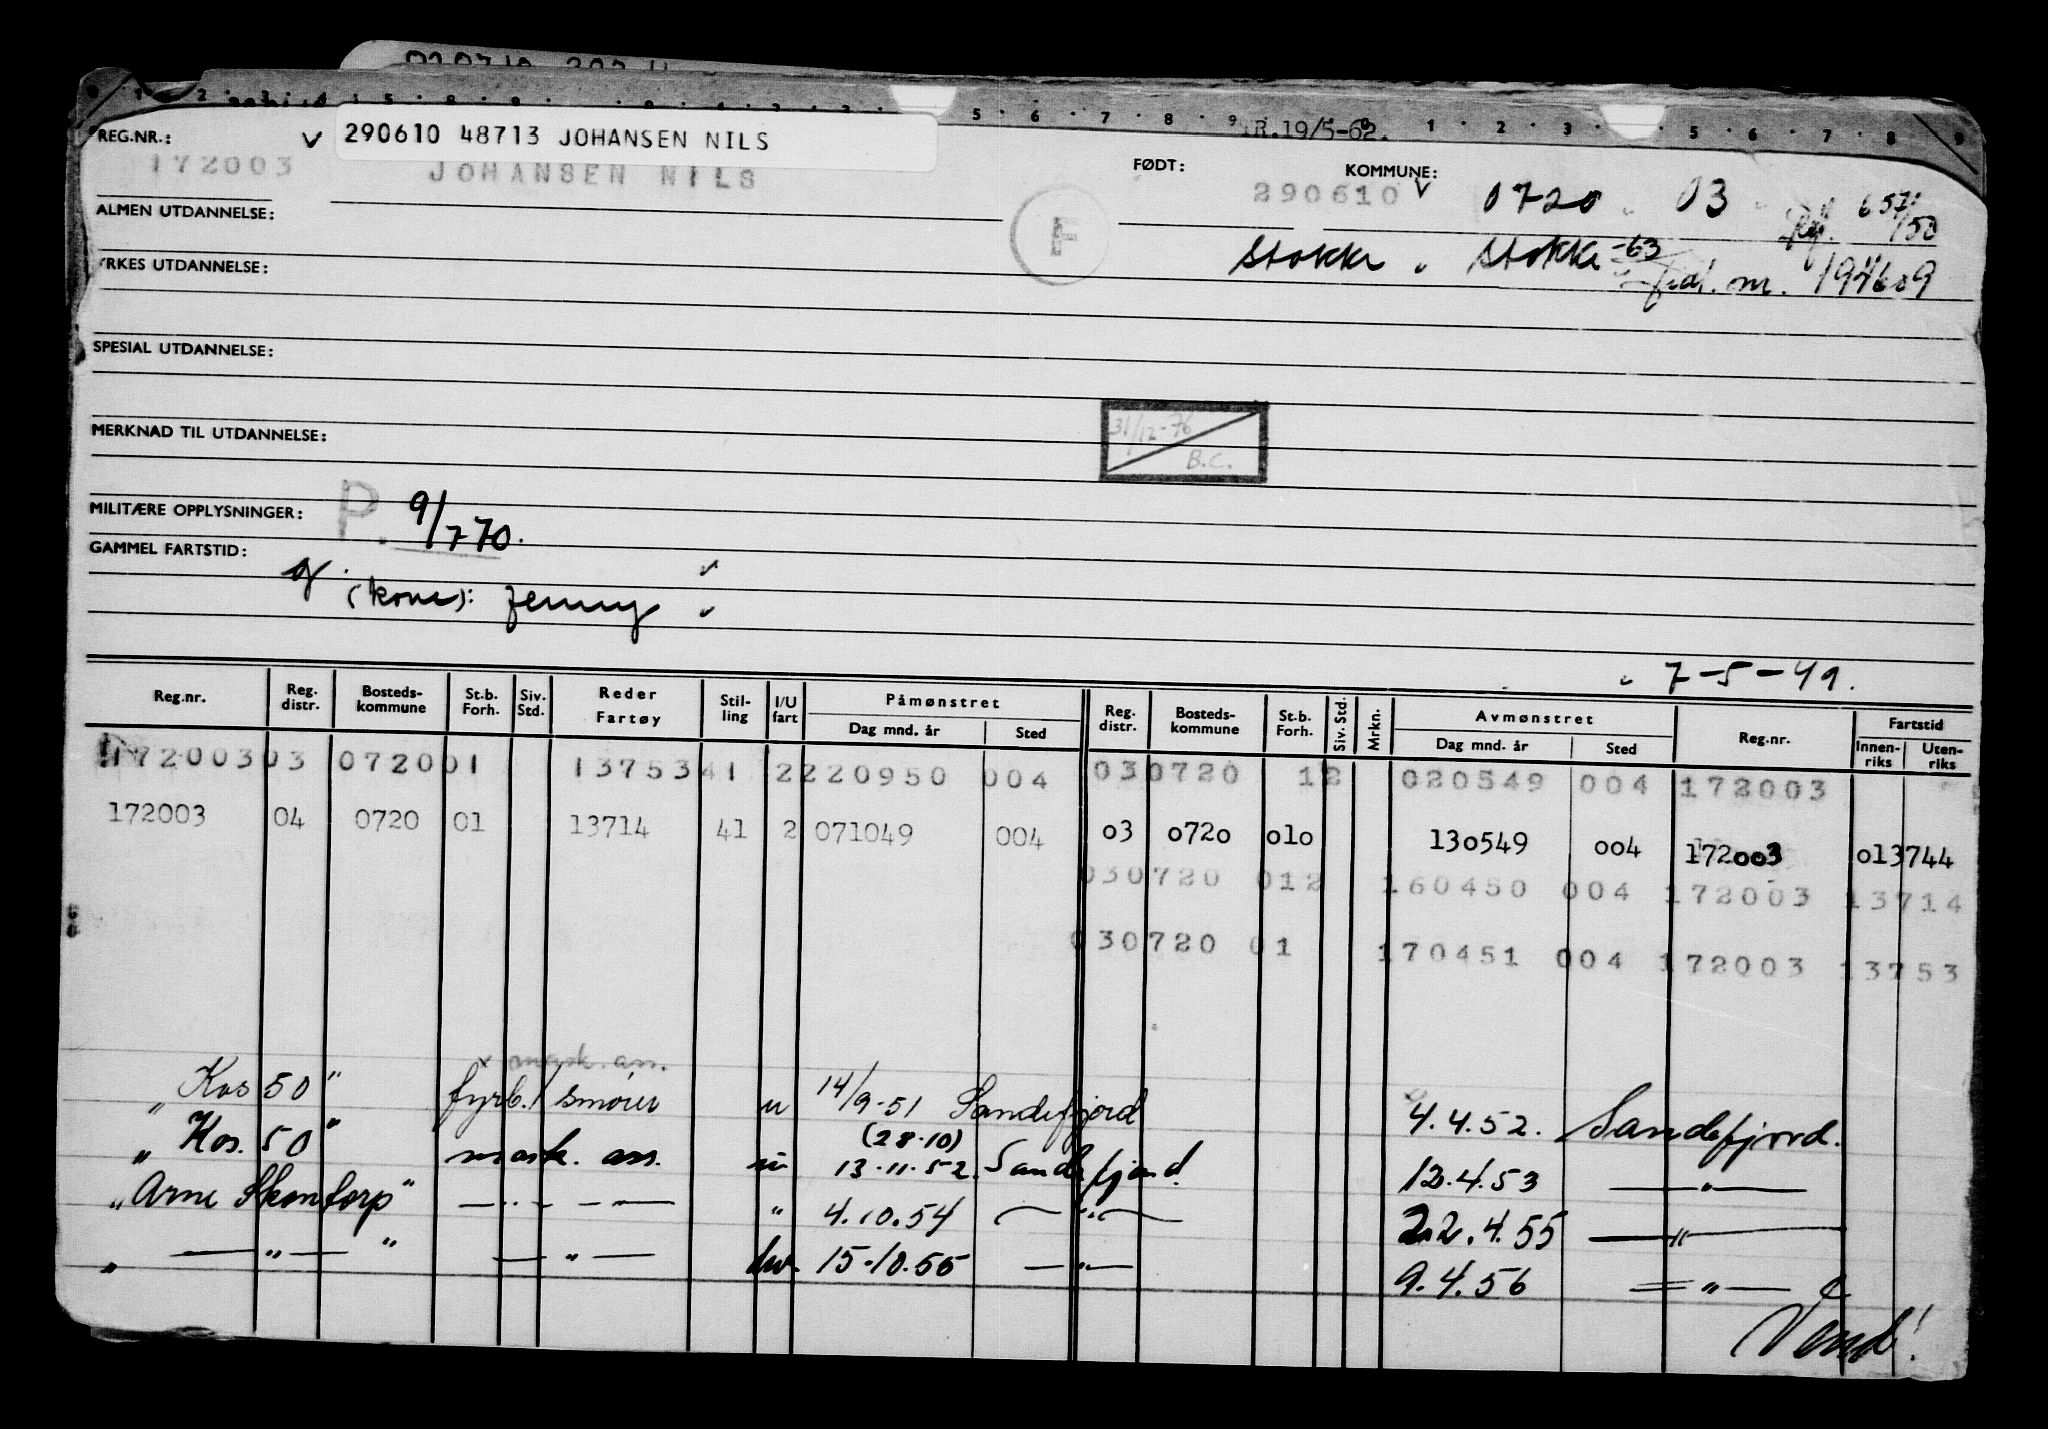 REG.NR.: 290610 48713 JOHANSEN NILS R.19/5-62.
172003 JOHANSEN NILS FØDT: 290610 KOMMUNE: 0720 03 657/50
ALMEN UTDANNELSE: F
Stokke Stokke -63
YRKES UTDANNELSE: nr. 194609
SPESIAL UTDANNELSE:
31/12-76
B.C.
MERKNAD TIL UTDANNELSE:
MILITÆRE OPPLYSNINGER: P. 9/770.
GAMMEL FARTSTID: g.
(kone): Jenny
7-5-49.
Reg.nr. Reg. distr. Bosteds-kommune St.b. Forh. Siv. Std. Reder Fartøy Stil-ling I/U fart Påmønstret Dag mnd. år Sted Reg. distr. Bosteds-kommune St.b. Forh. Siv. Std. Mrkn. Avmønstret Dag mnd. år Sted Reg.nr. Fartstid Innen-riks Uten-riks
172003 03 0720 01 13753 41 2 220950 004 03 0720 12 020549 004 172003
172003 04 0720 01 13714 41 2 071049 004 03 0720 010 130549 004 172003 013744
03 0720 012 160450 004 172003 13714
03 0720 01 170451 004 172003 13753
mask. ass.
"Kos 50" fyrb./smører u 14/9-51 Sandefjord 4.4.52. Sandefjord.
(28.10)
"Kos. 50" mask. ass. u 13.11.52. Sandefjord. 12.4.53 — " —
"Arne Skontorp" — " — " 4.10.54 — " — 22.4.55 — " —
" — " — " — " — hv. 15.10.55 — " — 9.4.56 — " —
Vend!